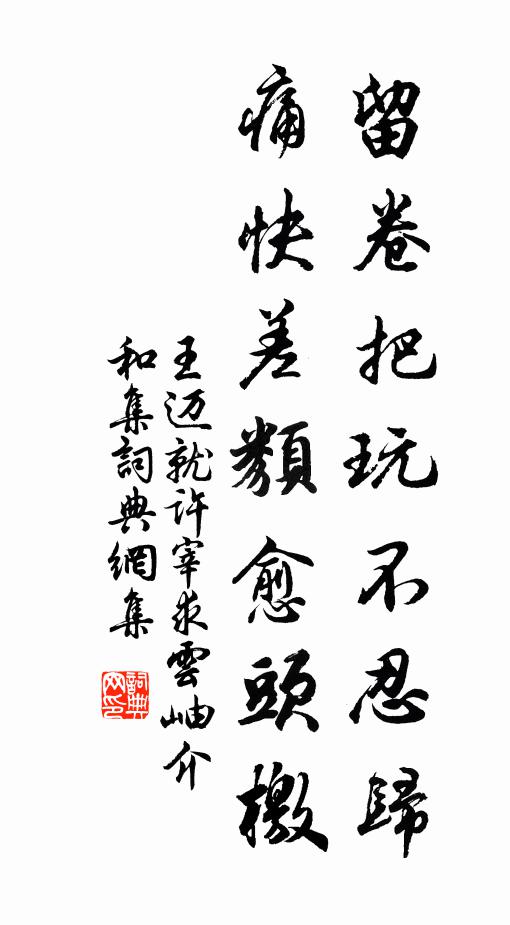 留卷把玩不忍歸
痛快差類愈頭檄
王迈就许宰求雲岫介
和集詞典網集
詞典网印